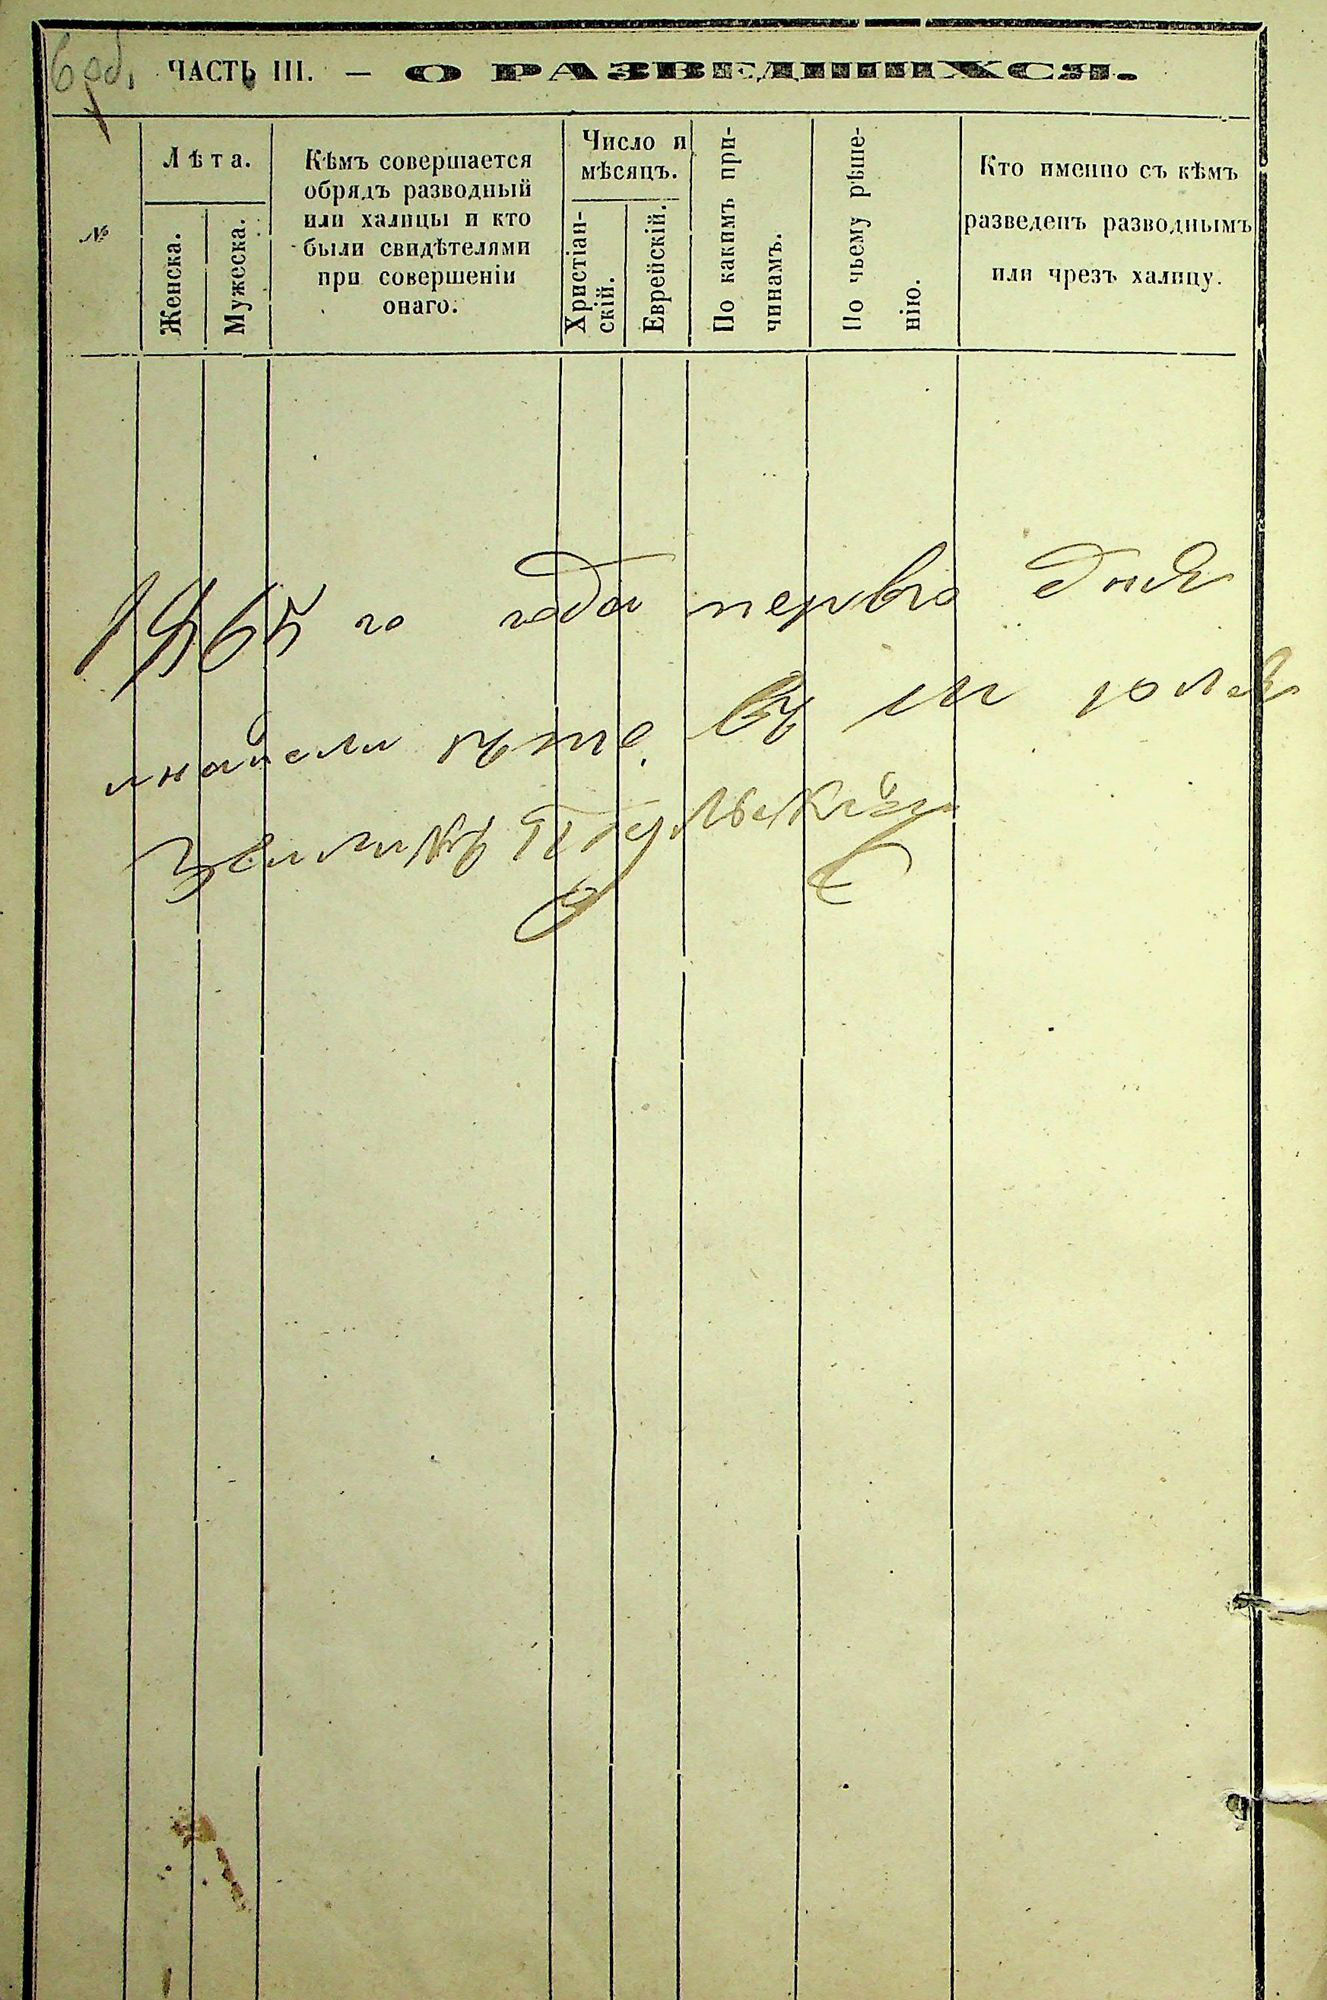 6 об.
ЧАСТЬ III. — О РАЗВЕДШИХСЯ.
№
Лѣта.
Женска.
Мужеска.
Кѣмъ совершается
обрядъ разводный
или халицы и кто
были свидѣтелями
при совершеніи
онаго.
Число и
мѣсяцъ.
Христіан-
скій.
Еврейскій.
По какимъ при-
чинамъ.
По чьему рѣше-
нію.
Кто именно съ кѣмъ
разведенъ разводнымъ
или чрезъ халицу.
1865 го года перваго дня